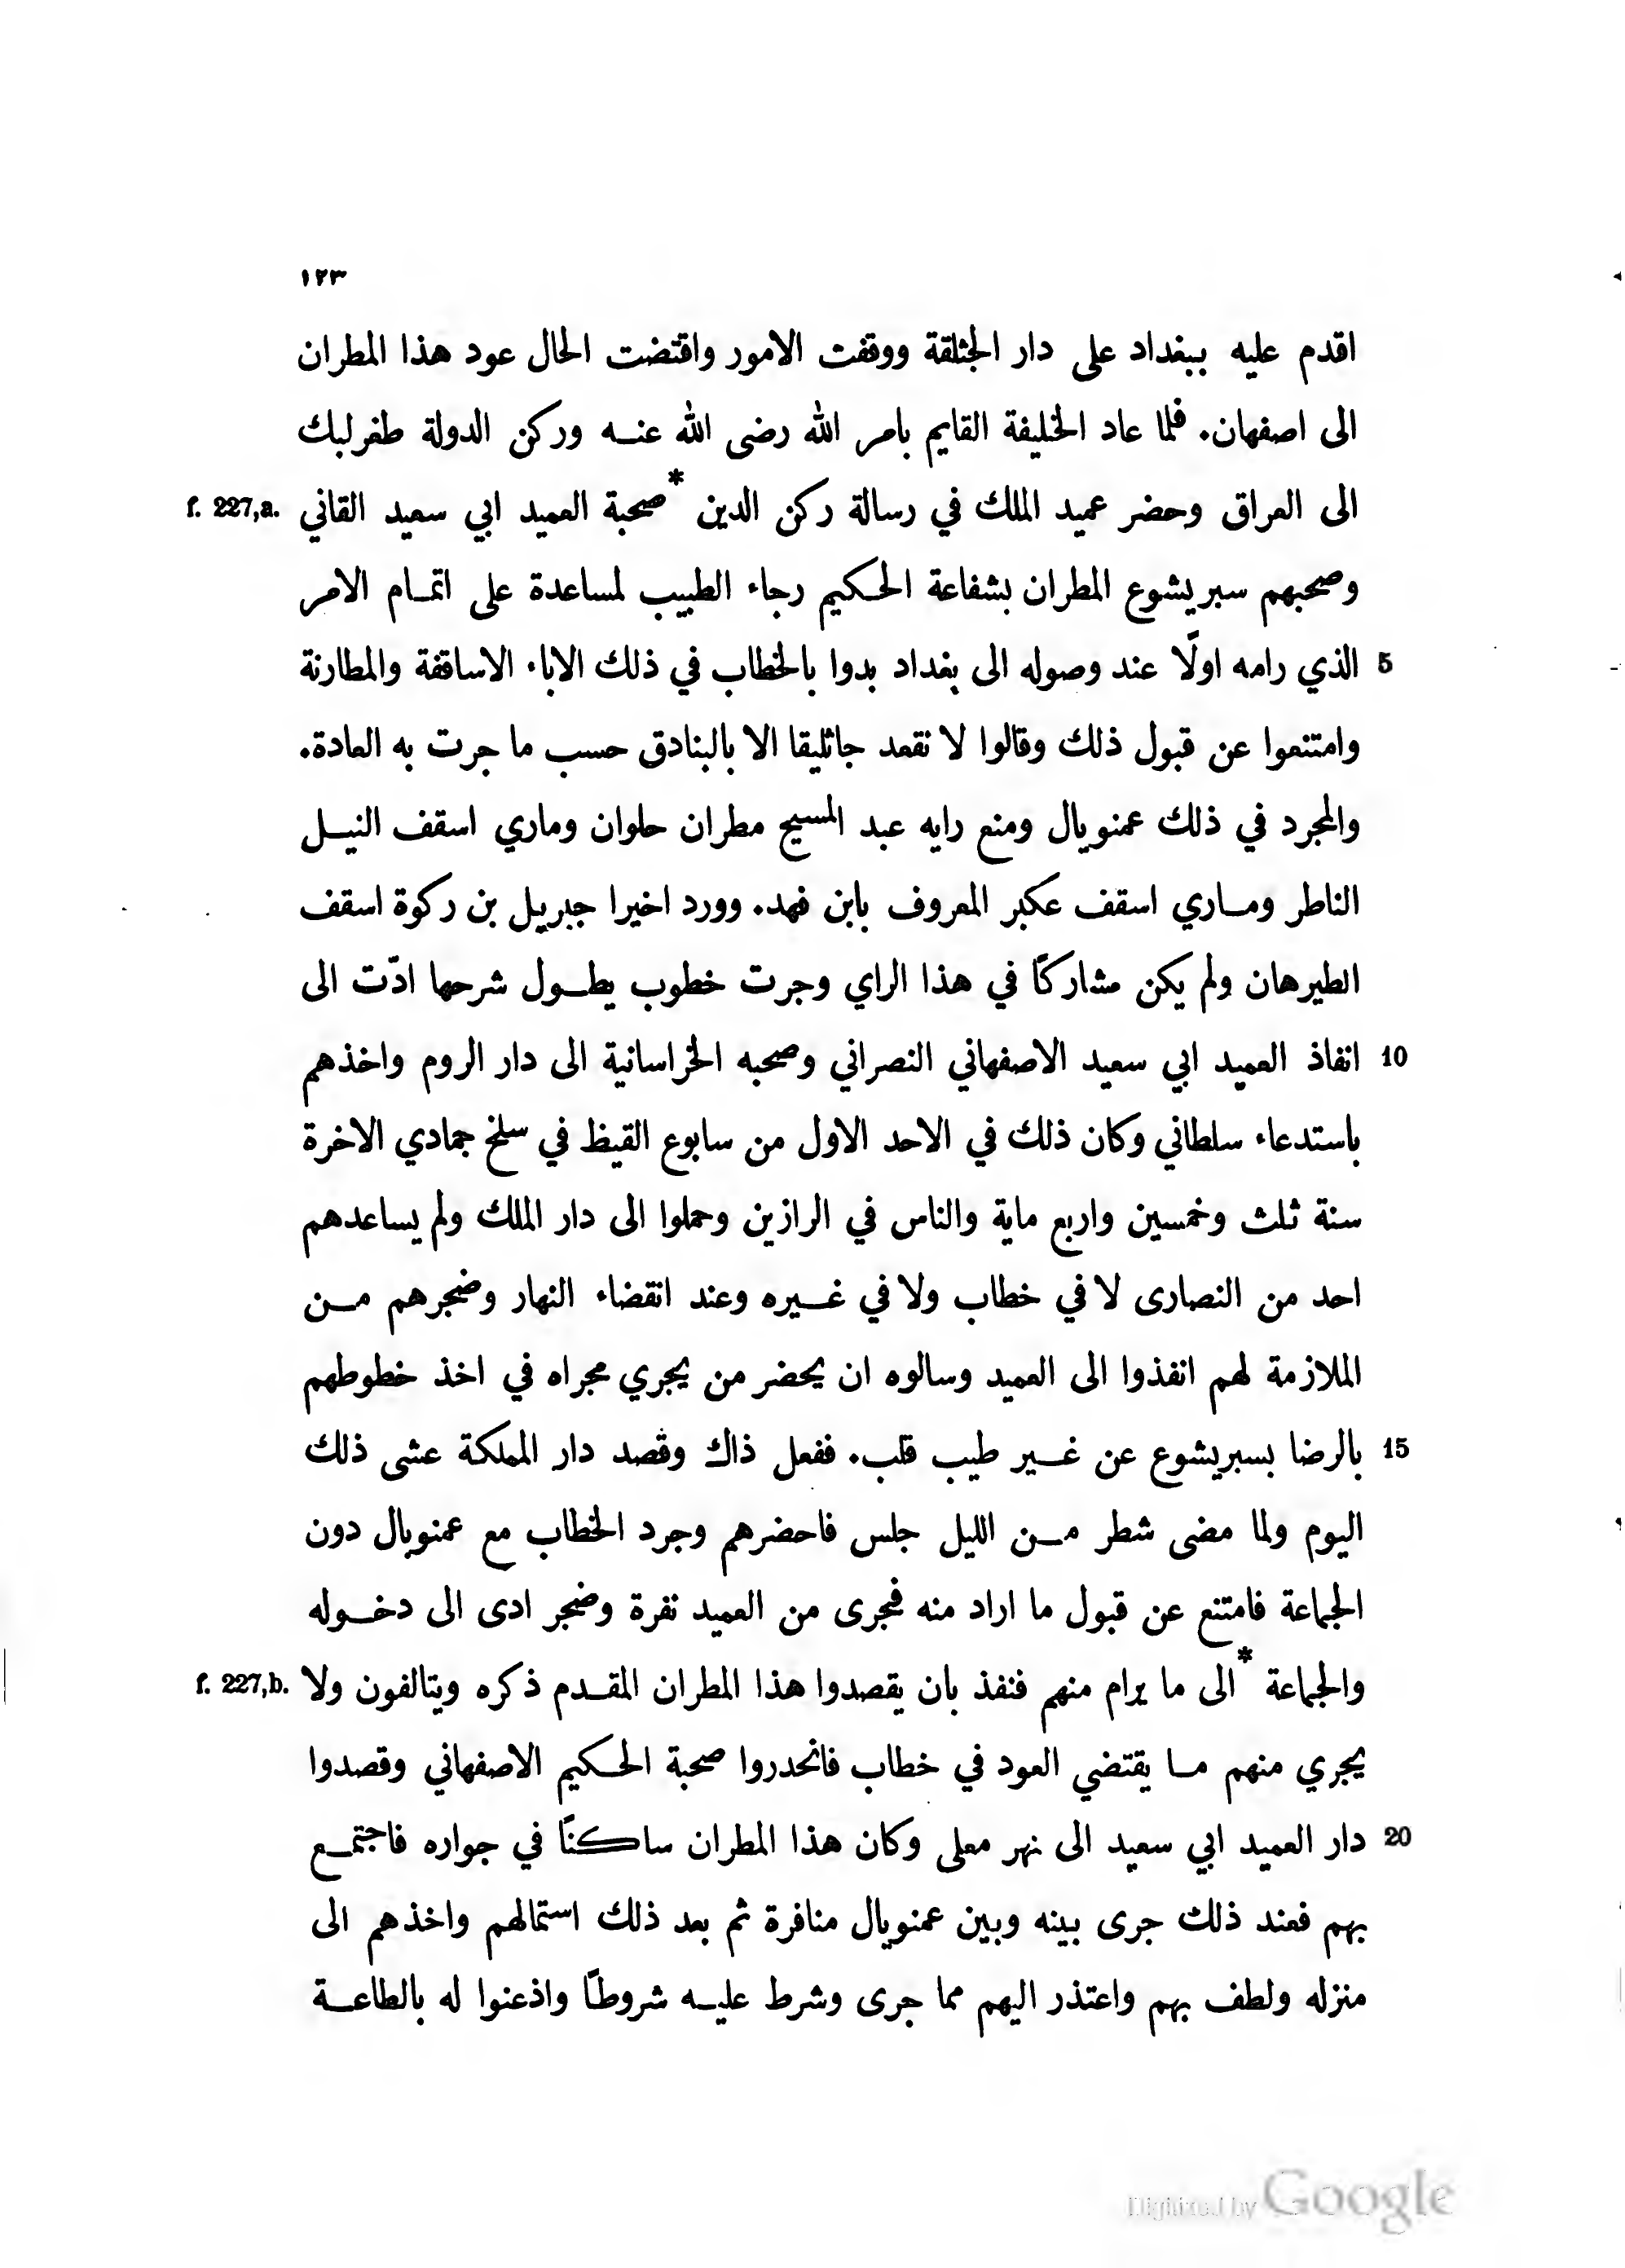 ١٢٣
اقدم عليه ببغداد على دار الجثلقة ووقفت الامور واقتضت الحال عود هذا المطران
الى اصفهان. فلما عاد الخليفة القايم بامر الله رضى الله عنه وركن الدولة طغرلبك
الى العراق وحضر عميد الملك في رسالة ركن الدين *صحبة العميد ابي سعيد القاني f. 227,a.
وصحبهم سبريشوع المطران بشفاعة الحكيم رجاء الطبيب لمساعدة على اتمام الامر
5 الذي رامه اولًا عند وصوله الى بغداد بدوا بالخطاب في ذلك الاباء الاساقفة والمطارنة
وامتنعوا عن قبول ذلك وقالوا لا نقعد جاثليقا الا بالبنادق حسب ما جرت به العادة.
والمجرد في ذلك عمنويال ومنع رايه عبد المسيح مطران حلوان وماري اسقف النيل
الناطر وماري اسقف عكبر المعروف بابن فهد. وورد اخيرا جبريل بن ركوة اسقف
الطيرهان ولم يكن مشاركًا في هذا الراي وجرت خطوب يطول شرحها ادّت الى
10 انفاذ العميد ابي سعيد الاصفهاني النصراني وصحبه الخراسانية الى دار الروم واخذهم
باستدعاء سلطاني وكان ذلك في الاحد الاول من سابوع القيظ في سلخ جمادي الاخرة
سنة ثلث وخمسين واربع ماية والناس في الرازين وحملوا الى دار الملك ولم يساعدهم
احد من النصارى لا في خطاب ولا في غيره وعند انقضاء النهار وضجرهم من
الملازمة لهم انفذوا الى العميد وسالوه ان يحضر من يجري مجراه في اخذ خطوطهم
15 بالرضا بسبريشوع عن غير طيب قلب. ففعل ذاك وقصد دار المملكة عشى ذلك
اليوم ولما مضى شطر من الليل جلس فاحضرهم وجرد الخطاب مع عمنويال دون
الجماعة فامتنع عن قبول ما اراد منه فجرى من العميد نفرة وضجر ادى الى دخوله
والجماعة *الى ما يرام منهم فنفذ بان يقصدوا هذا المطران المقدم ذكره ويتالفون ولا f. 227,b.
يجري منهم ما يقتضي العود في خطاب فانحدروا صحبة الحكيم الاصفهاني وقصدوا
20 دار العميد ابي سعيد الى نهر معلى وكان هذا المطران ساكنًا في جواره فاجتمع
بهم فعند ذلك جرى بينه وبين عمنويال منافرة ثم بعد ذلك استمالهم واخذهم الى
منزله ولطف بهم واعتذر اليهم مما جرى وشرط عليه شروطًا واذعنوا له بالطاعة
Digitized by Google